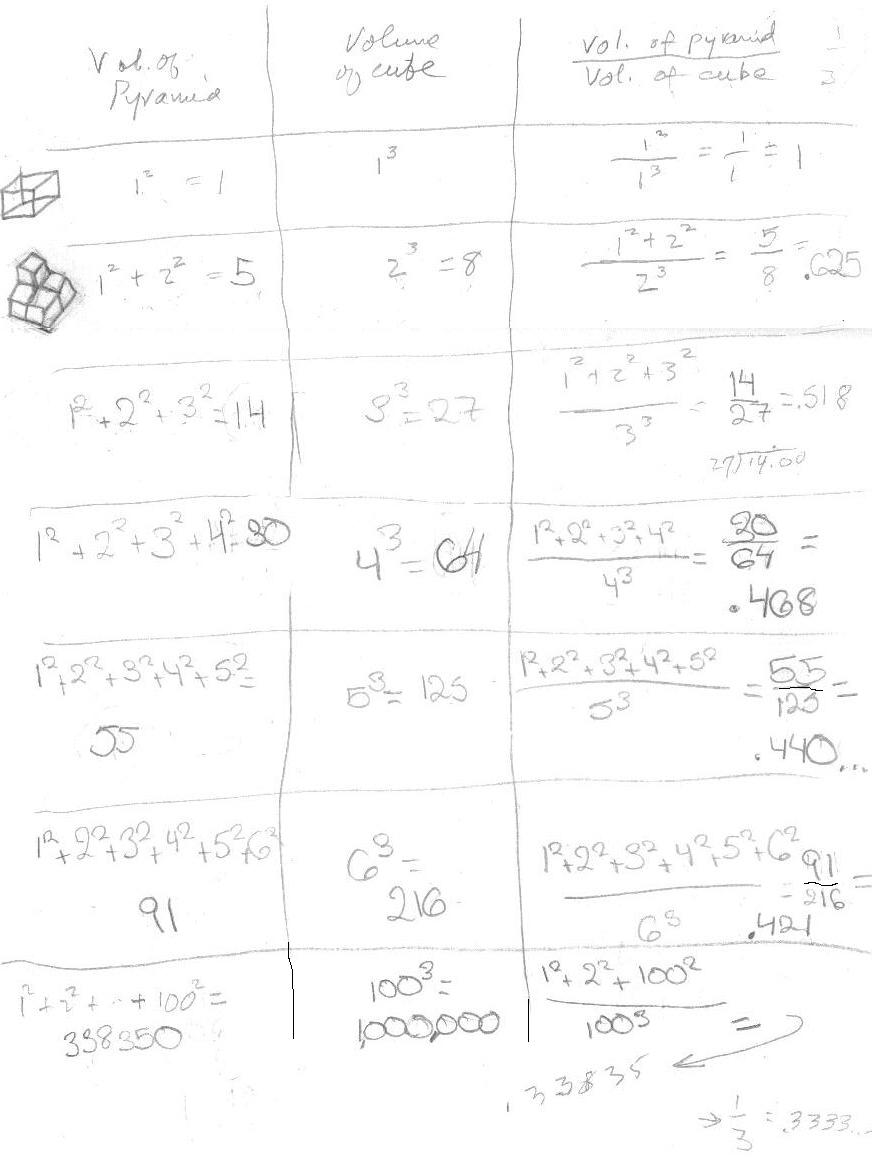 Vol. of
Pyramid
Volume
of cube
Vol. of pyramid
Vol. of cube
1
3
1² = 1
1³
1²/1³ = 1/1 = 1
1² + 2² = 5
2³ = 8
1² + 2²/2³ = 5/8 = .625
1² + 2² + 3² = 14
3³ = 27
1² + 2² + 3²/3³ = 14/27 = .518
27)14.00
1² + 2² + 3² + 4² = 30
4³ = 64
1² + 2² + 3² + 4²/4³ = 30/64 =
.468
1² + 2² + 3² + 4² + 5² =
55
5³ = 125
1² + 2² + 3² + 4² + 5²/5³ = 55/125 =
.440...
1² + 2² + 3² + 4² + 5² + 6²
91
6³ =
216
1² + 2² + 3² + 4² + 5² + 6²/6³ = 91/216 =
.421
1² + 2² + ... + 100² =
338350
100³ =
1,000,000
1² + 2² + 100²/100³ =
.33835
→ 1/3 = .3333...